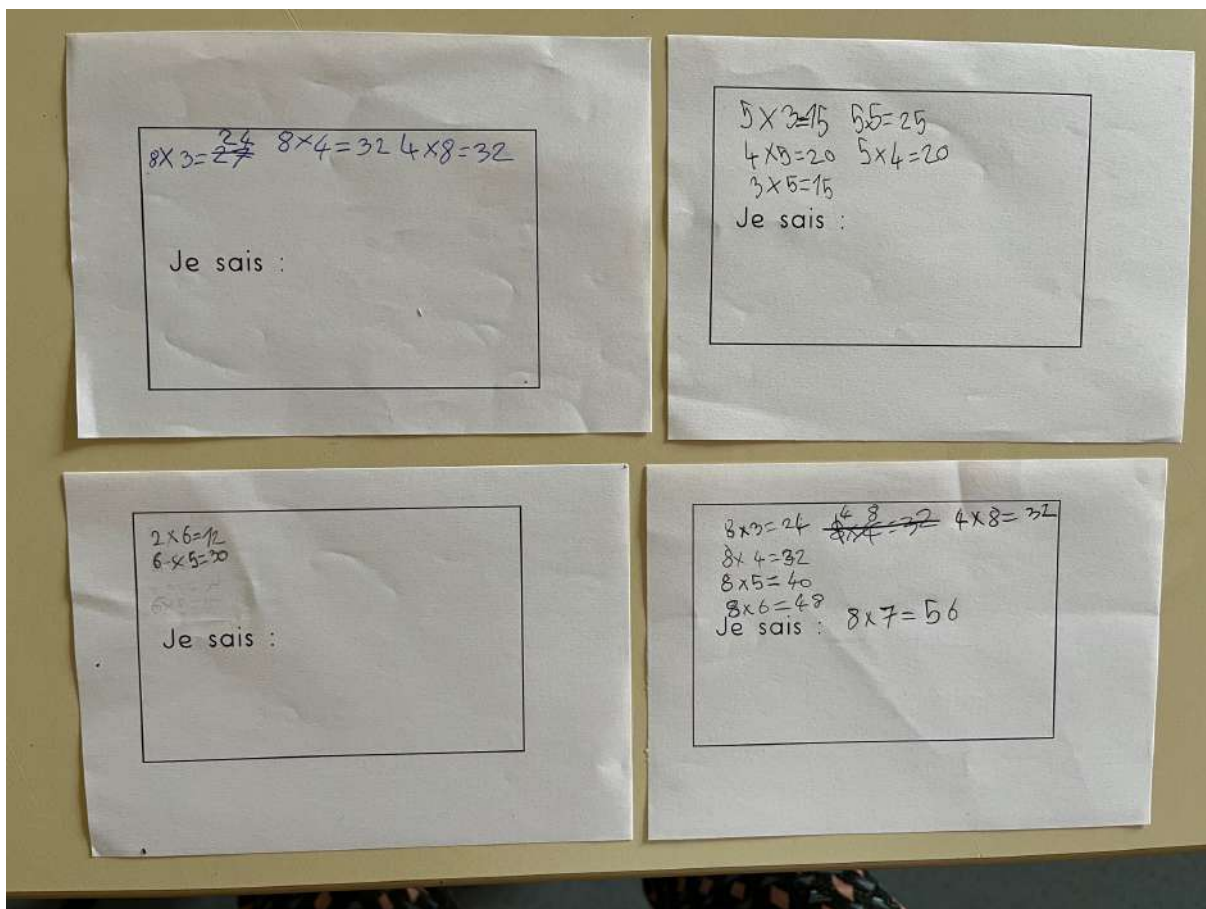 24
8×3=27 8×4=32 4×8=32
Je sais :
5×3=15 5×5=25
4×5=20 5×4=20
3×5=15
Je sais :
2×6=12
6×5=30
Je sais :
8×3=24 4×8=32
8×4=32
8×5=40
8×6=48
Je sais : 8×7=56